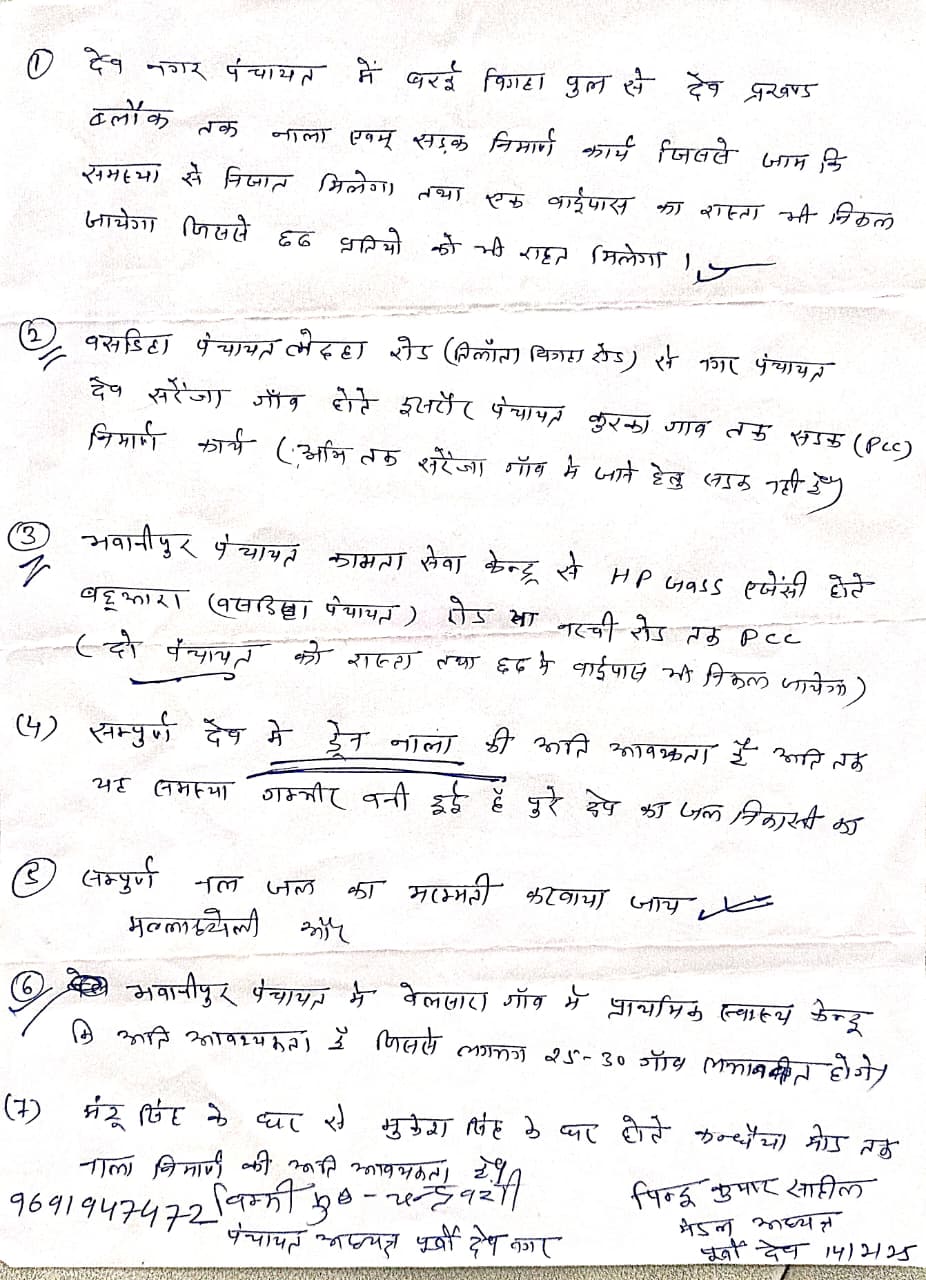 ① देव नगर पंचायत में बरई बिगहा पुल से देव प्रखण्ड
ब्लौक तक नाला एवम् सड़क निमार्ण कार्य जिससे जाम कि
समस्या से निजात मिलेगा तथा एक बाईपास का रास्ता भी निकल
जायेगा जिससे छठ व्रतियो को भी राहत मिलेगा ।
② बसडिहा पंचायत रोड ( बिगहा रोड) से नगर पंचायत
देव सरैंजा गॉव होते इसरौर पंचायत कुरका गाव तक सडक (PCC)
निमार्ण कार्य (अभि तक सरैंजा गॉव मे जाने हेतु सडक नही है)
③ भवानीपुर पंचायत कामता सेवा केन्द्र से HP गass एजेंसी होते
बहूआरा (बसडिहा पंचायत) रोड नरची रोड तक PCC
(दो पंचायत को रास्ता तथा छठ मे बाईपास भी निकल जायेगा)
(4) सम्पुर्ण देव मे ड्रेन नाला की अति आवश्कता है अति तक
यह समस्या गम्भीर बनी हुई है पुरे देव का जल निकासी का
⑤ सम्पुर्ण नल जल का मरम्मती करवाया जाय
और
⑥ भवानीपुर पंचायत मे बेलसारा गॉव में प्राथमिक स्वास्थ्य केन्द्र
कि अति आवश्यकता है जिससे लगभग 25-30 गॉव लाभान्वीत होगे
(7) मंटू सिंह के घर से मुकेश सिंह के घर होते कन्धैया मोड तक
नाला निमार्ण की अति आवश्यकता है।
9691947472 विम्मी कु० - चन्द्रवंशी
पंचायत अध्यक्ष पूर्वी देव नगर
पिन्टू कुमार साहील
मंडल अध्यक्ष
पूर्वी देव 14/2/25